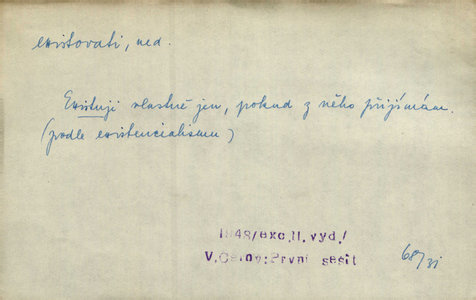 existovati, ned.
Existuji vlastně jen, pokud z něho přijímám.
(podle existencialismu)
1948/exc.II.vyd./
V.Černý:První sešit
68/31